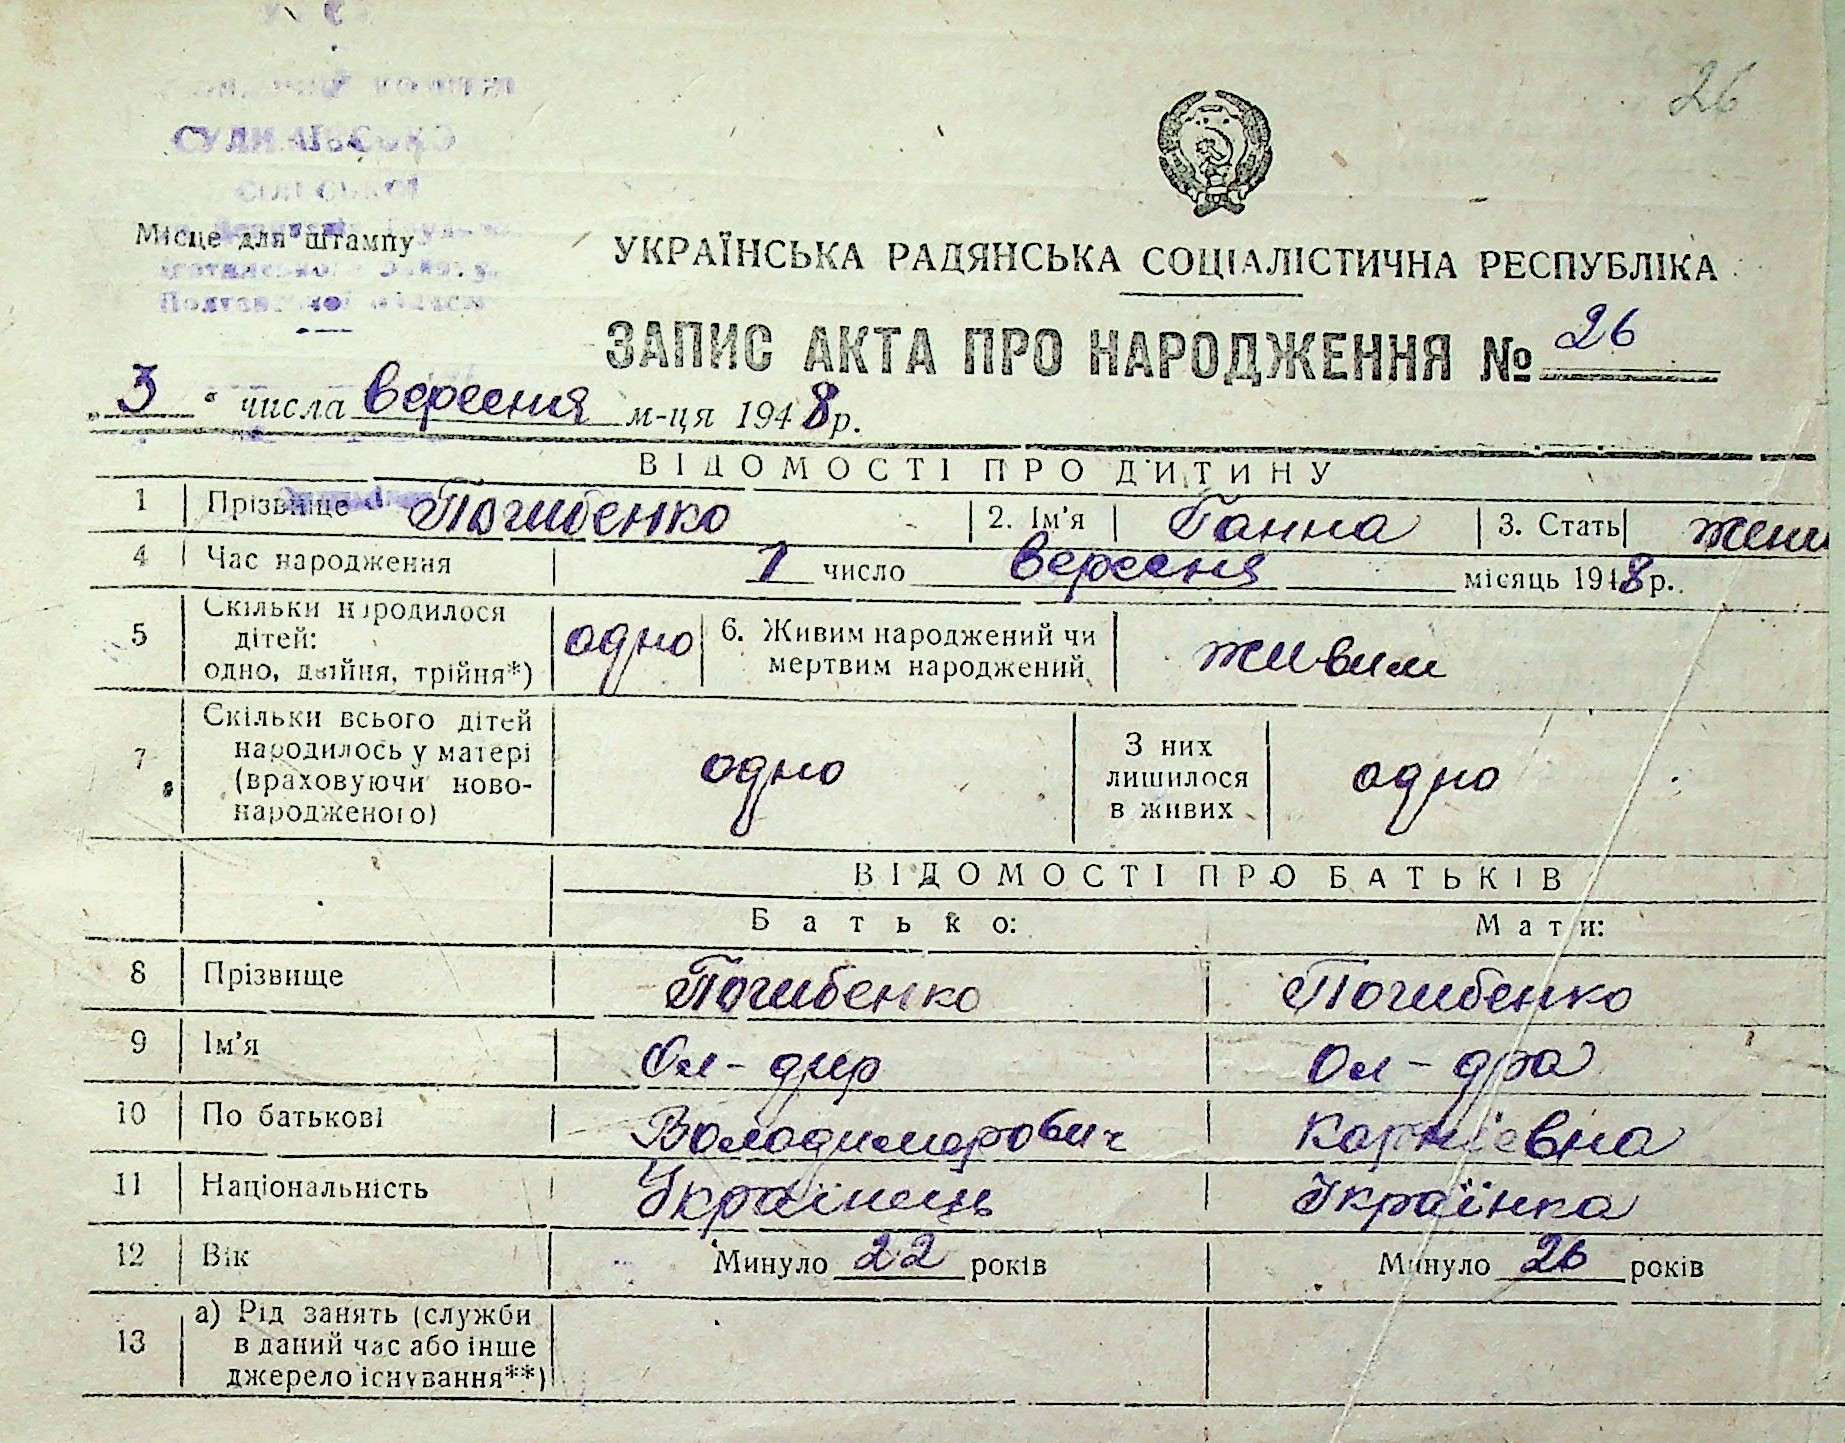 26
Місце для штампу
УКРАЇНСЬКА РАДЯНСЬКА СОЦІАЛІСТИЧНА РЕСПУБЛІКА
ЗАПИС АКТА ПРО НАРОДЖЕННЯ № 26
„3“ числа вересня м-ця 1948 р.
ВІДОМОСТІ ПРО ДИТИНУ
1 Прізвище Погибенко 2. Ім'я Ганна 3. Стать жени
4 Час народження 1 число вересня місяць 1948 р.
5 Скільки народилося
дітей:
одно, двійня, трійня*) одно 6. Живим народжений чи
мертвим народжений живим
7 Скільки всього дітей
народилось у матері
(враховуючи ново-
народженого) одно З них
лишилося
в живих одно
ВІДОМОСТІ ПРО БАТЬКІВ
Батько: Мати:
8 Прізвище Погибенко Погибенко
9 Ім'я Ол-дир Ол-дра
10 По батькові Володимирович Корніевна
11 Національність Українець Українка
12 Вік Минуло 22 років Минуло 26 років
13 а) Рід занять (служби
в даний час або інше
джерело існування**)